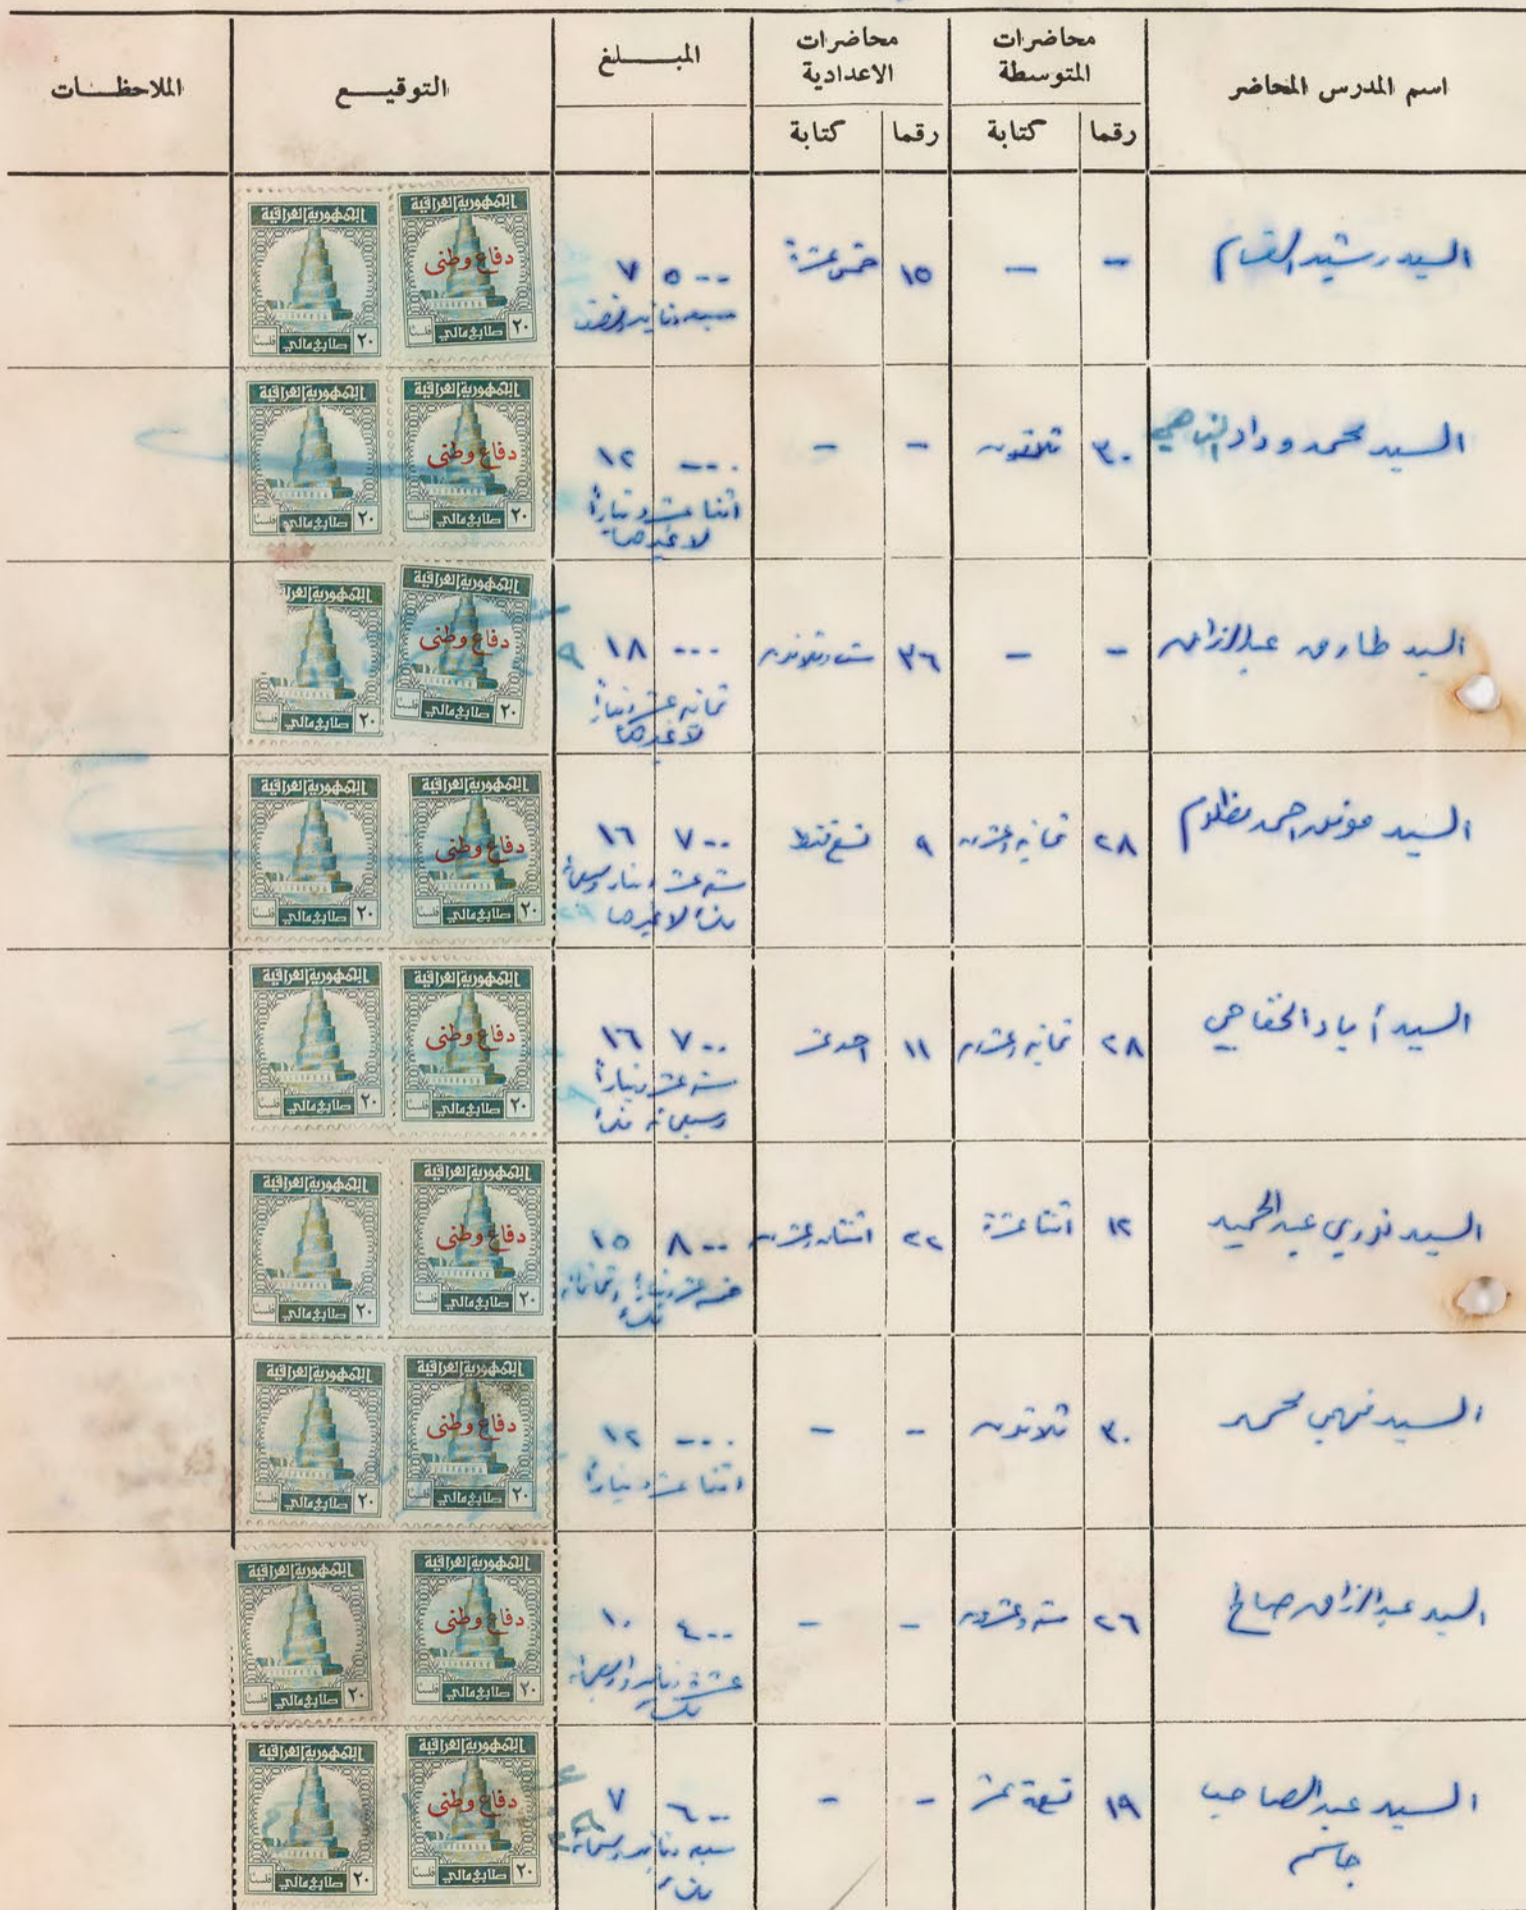 اسم المدرس المحاضر
محاضرات المتوسطة
محاضرات الاعدادية
المبلغ
التوقيع
الملاحظات
رقما
كتابة
رقما
كتابة
السيد رشيد القسام
-
-
١٥
خمس عشرة
٥٠٠ ٧
الجمهورية العراقية
دفاع وطني
٢٠ طابع مالي فلسًا
الجمهورية العراقية
٢٠ طابع مالي فلسًا
السيد محمد وداد
٣٠
ثلاثون
-
-
٠٠٠ ١٢
اثنا عشر دينارا
لا غيرها
الجمهورية العراقية
دفاع وطني
٢٠ طابع مالي فلسًا
الجمهورية العراقية
٢٠ طابع مالي فلسًا
السيد طارق عبد الرزاق
-
-
٣٦
ست وثلاثون
٠٠٠ ١٨
ثمانية عشر دينارا
لا غيرها
الجمهورية العراقية
دفاع وطني
٢٠ طابع مالي فلسًا
٢٠ طابع مالي فلسًا
السيد موفق احمد مظلوم
٢٨
ثمانية وعشرون
٩
تسع فقط
٧٠٠ ١٦
ستة عشر دينار وسبعمائة
فلسا لا غيرها
الجمهورية العراقية
دفاع وطني
٢٠ طابع مالي فلسًا
الجمهورية العراقية
٢٠ طابع مالي فلسًا
السيد أياد الخفاجي
٢٨
ثمانية وعشرون
١١
احد عشر
٧٠٠ ١٦
ستة عشر دينارا
وسبعمائة فلسا
الجمهورية العراقية
دفاع وطني
٢٠ طابع مالي فلسًا
الجمهورية العراقية
٢٠ طابع مالي فلسًا
السيد نوري عبد الحميد
١٢
اثنتا عشرة
٢٢
اثنتان وعشرون
٨٠٠ ١٥
خمسة عشر دينارا وثمانمائة
فلسا
الجمهورية العراقية
دفاع وطني
٢٠ طابع مالي فلسًا
الجمهورية العراقية
٢٠ طابع مالي فلسًا
السيد فهمي محمد
٣٠
ثلاثون
-
-
٠٠٠ ١٢
اثنا عشر دينارا
الجمهورية العراقية
دفاع وطني
٢٠ طابع مالي فلسًا
الجمهورية العراقية
٢٠ طابع مالي فلسًا
السيد عبد الرزاق صالح
٢٦
ستة وعشرون
-
-
٤٠٠ ١٠
عشرة دنانير واربعمائة
فلس
الجمهورية العراقية
دفاع وطني
٢٠ طابع مالي فلسًا
الجمهورية العراقية
٢٠ طابع مالي فلسًا
السيد عبد الصاحب
جاسم
١٩
تسعة عشر
-
-
٦٠٠ ٧
سبعة دنانير وستمائة
فلسا
الجمهورية العراقية
دفاع وطني
٢٠ طابع مالي فلسًا
الجمهورية العراقية
٢٠ طابع مالي فلسًا